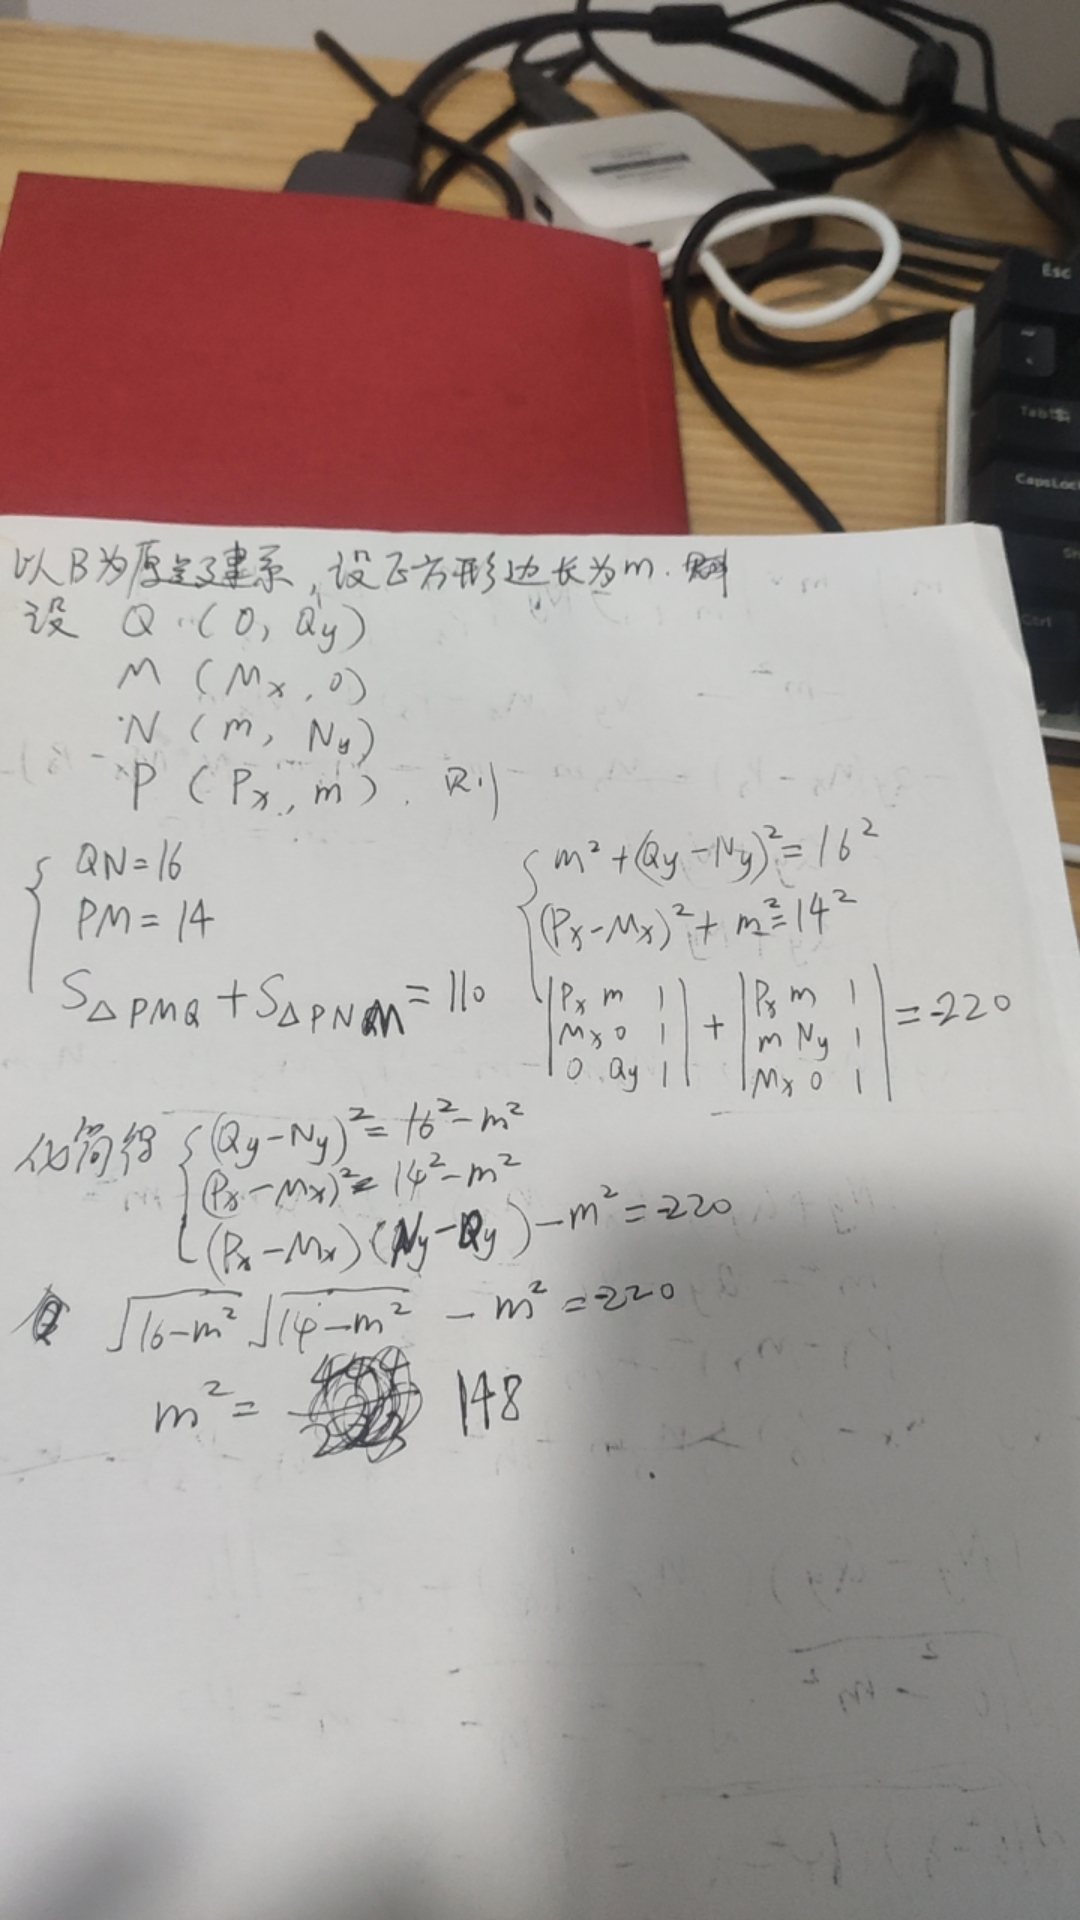 Esc
Tab
CapsLoc
Sh
Ctrl
以B为原点建系,设正方形边长为m.
设 Q (0, Qy)
M (Mx, 0)
N (m, Ny)
P (Px, m). 则
{ QN=16
PM=14
S△PMQ + S△PNM = 110
{ m²+(Qy-Ny)²=16²
(Px-Mx)²+m²=14²
|Px m 1| + |Px m 1| = -220
|Mx 0 1| |m Ny 1|
|0 Qy 1| |Mx 0 1|
化简得 { (Qy-Ny)²=16²-m²
(Px-Mx)²=14²-m²
(Px-Mx)(Ny-Qy)-m²=-220
√16-m² √14-m² - m² = -220
m²= 148